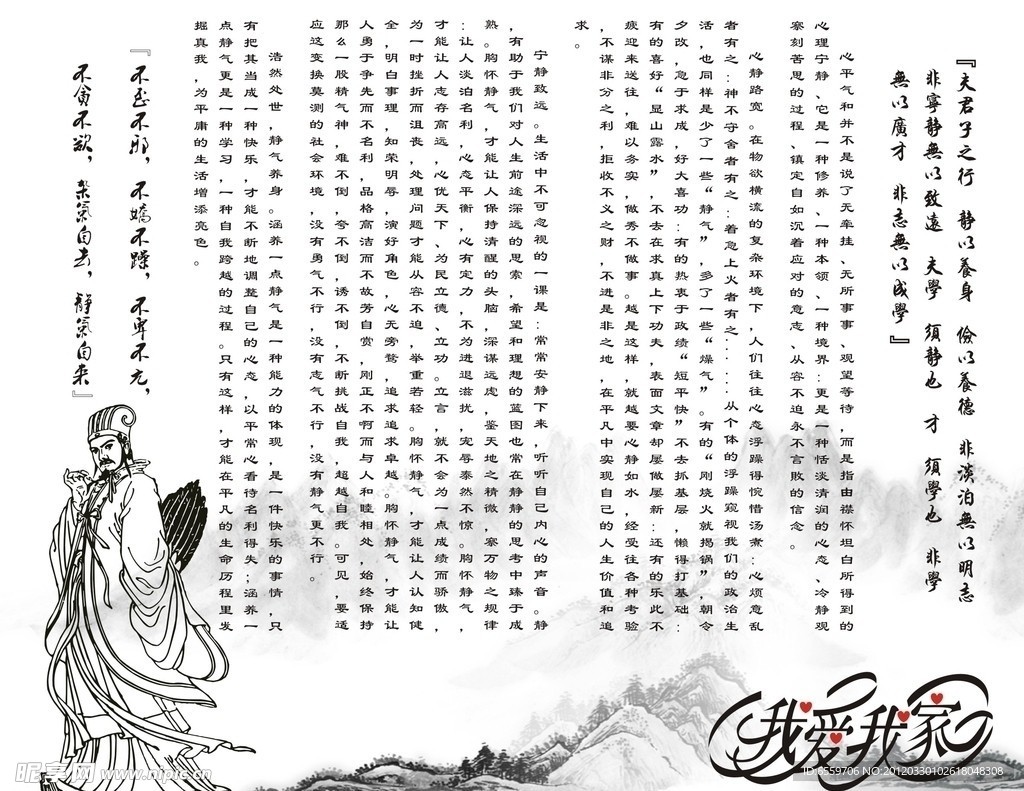 『夫君子之行 静以養身 儉以養德 非淡泊無以明志
非寧静無以致遠 夫學 須静也 才 須學也 非學
無以廣才 非志無以成學』
心平气和并不是说了无牵挂、无所事事、观望等待，而是指由襟怀坦白所得到的
心理宁静、它是一种修养、一种本领、一种境界：更是一种恬淡清润的心态、冷静观
察刻苦思的过程、镇定自如沉着应对的意志、从容不迫永不言败的信念。
心静路宽。在物欲横流的复杂环境下，人们往往心态浮躁得惋惜汤煮：心烦意乱
者有之：神不守舍者有之：着急上火者有之……从个体的浮躁窥视我们的政治生
活，也同样是少了一些“静气”，多了一些“燥气”。有的“刚烧火就揭锅”，朝令
夕改，急于求成，好大喜功：有的热衷于政绩“短平快”不去抓基层，懒得打基础：
有的喜好“显山露水”，不去在求真上下功夫，表面文章却屡做屡新：还有的乐此不
疲迎来送往，难以务实，做秀不做事。越是这样，就越要心静如水，经受往各种考验
，不谋非分之利，拒收不义之财，不进是非之地，在平凡中实现自己的人生价值和追
求。
宁静致远。生活中不可忽视的一课是：常常安静下来，听听自己内心的声音。静
，有助于我们对人生前途深远的思索，希望和理想的蓝图也常在静静的思考中臻于成
熟。胸怀静气，才能让人保持清醒的头脑，深谋远虑，鉴天地之精微，察万物之规律
：让人淡泊名利，心态平衡，心有定力，不为进退滋扰，宠辱泰然不惊。胸怀静气，
才能让人志存高远，心优天下、为民立德、立功。立言，就不会为一点成绩而骄傲，
为一时挫折而沮丧，处理问题才能从容不迫，举重若轻。胸怀静气，才能让人认知健
全，明白事理，知荣明辱，演好角色，心无旁骛，追求追求卓越。胸怀静气，才能让
人勇于争先而不名利，品格高洁而不故芳自赏，刚正不啊而与人和睦相处，始终保持
那么一股精气神，难不倒，夸不倒，诱不倒，不断挑战自我，超越自我。可见，要适
应这变换莫测的社会环境，没有勇气不行，没有志气不行，没有静气更不行。
浩然处世，静气养身。涵养一点静气是一种能力的体现，是一件快乐的事情，只
有把其当成一种快乐，才能不断地调整自己的心态，以平常心看待名利得失；涵养一
点静气更是一种学习，一种自我跨越的过程。只有这样，才能在平凡的生命历程里发
掘真我，为平庸的生活增添亮色。
『 不歪不邪， 不嬌不躁， 不卑不亢，
不貪不欲， 杂氣自去， 静氣自来 』
我爱我家
昵享网 www.nipic.cn
ID:6559706 NO:20120330102618048308